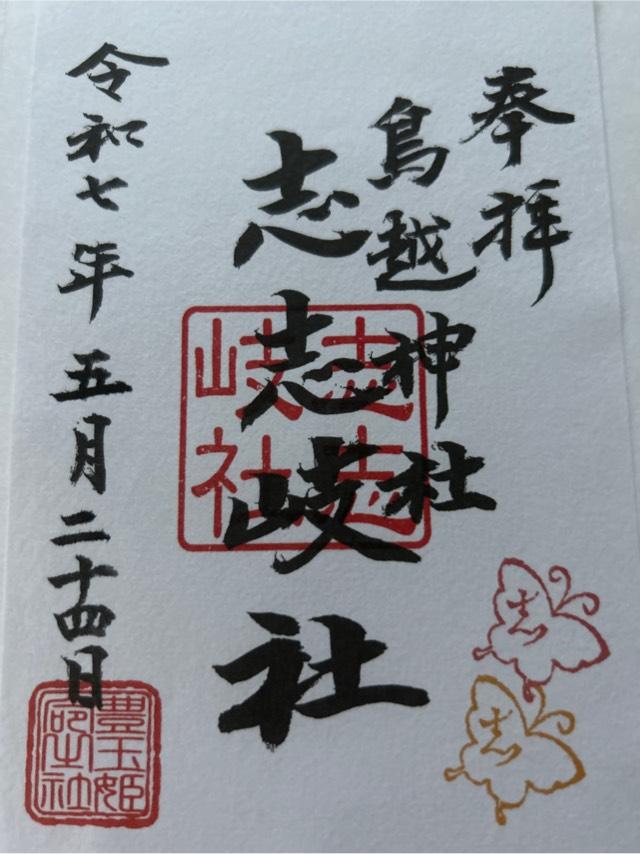 奉拝
鳥越神社
志志岐社
令和七年五月二十四日
志志岐社
志
志
豊玉姫
神社